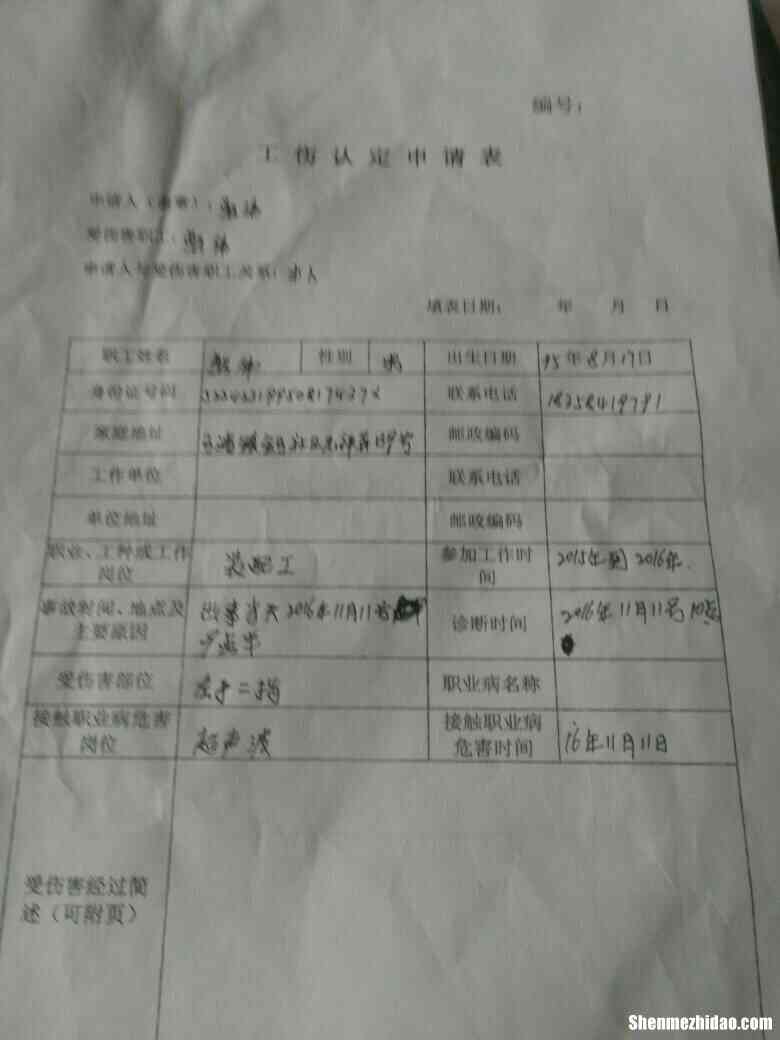 编号：
工伤认定申请表
申请人（盖章）：
受伤害职工：
申请人与受伤害职工关系：本人
填表日期： 年 月 日
职工姓名 性别 男 出生日期 95年8月17日
身份证号码 联系电话 18258419791
家庭地址 邮政编码
工作单位 联系电话
单位地址 邮政编码
职业、工种或工作岗位 装配工 参加工作时间 2015年到2016年.
事故时间、地点及主要原因 2016年11月11号 点半 诊断时间 2016年11月11号10点
受伤害部位 二指 职业病名称
接触职业病危害岗位 超声波 接触职业病危害时间 16年11月11日
受伤害经过简述（可附页）
Shenmezhidao.com